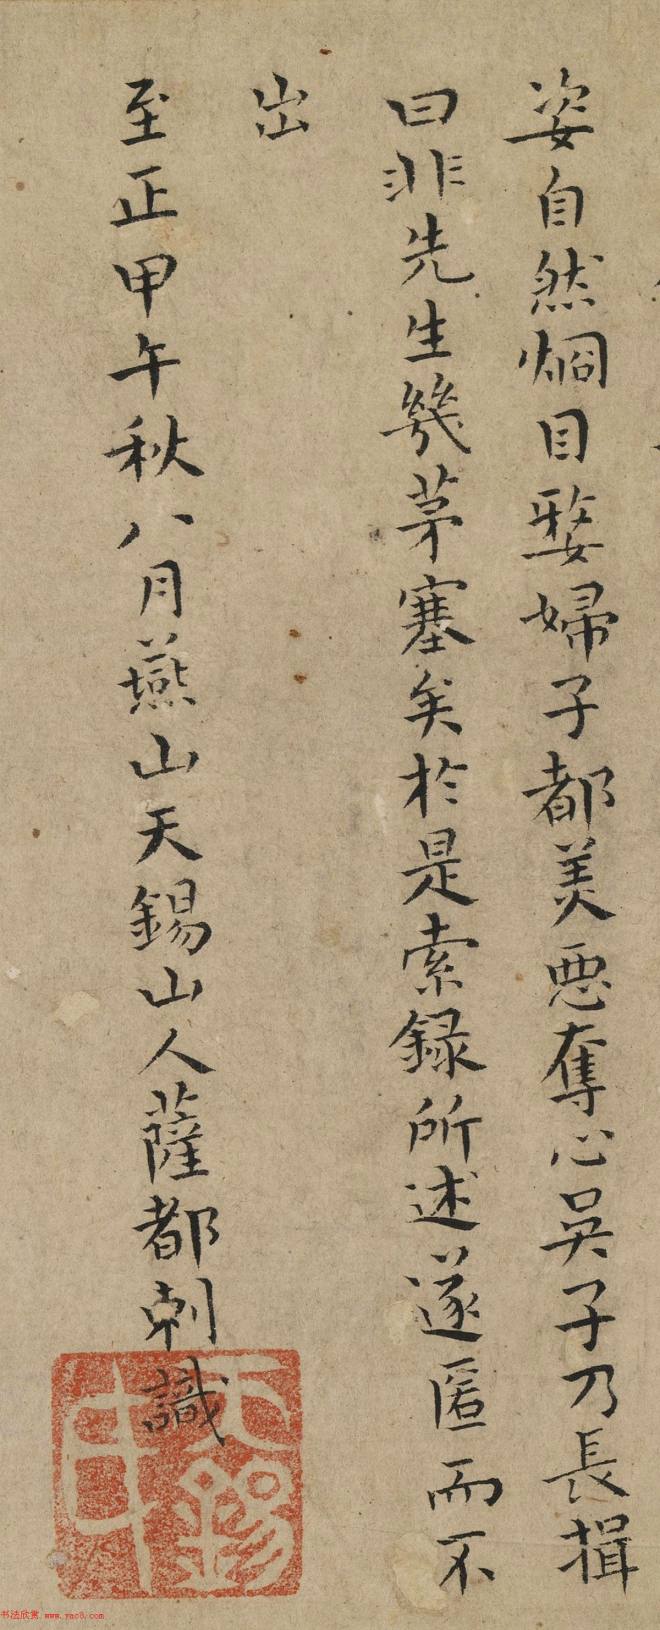 姿自然炯目嫛婦子都美惡奪心吴子乃長揖
曰非先生幾茅塞矣於是索録所述遂匿而不
出
至正甲午秋八月燕山天錫山人薩都剌識
天錫
书法欣赏.www.yac8.com